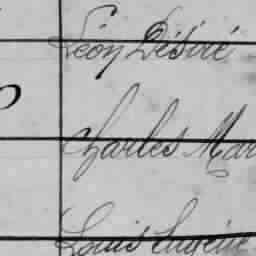 Léon Désiré
Charles Mar
Louis Eugène